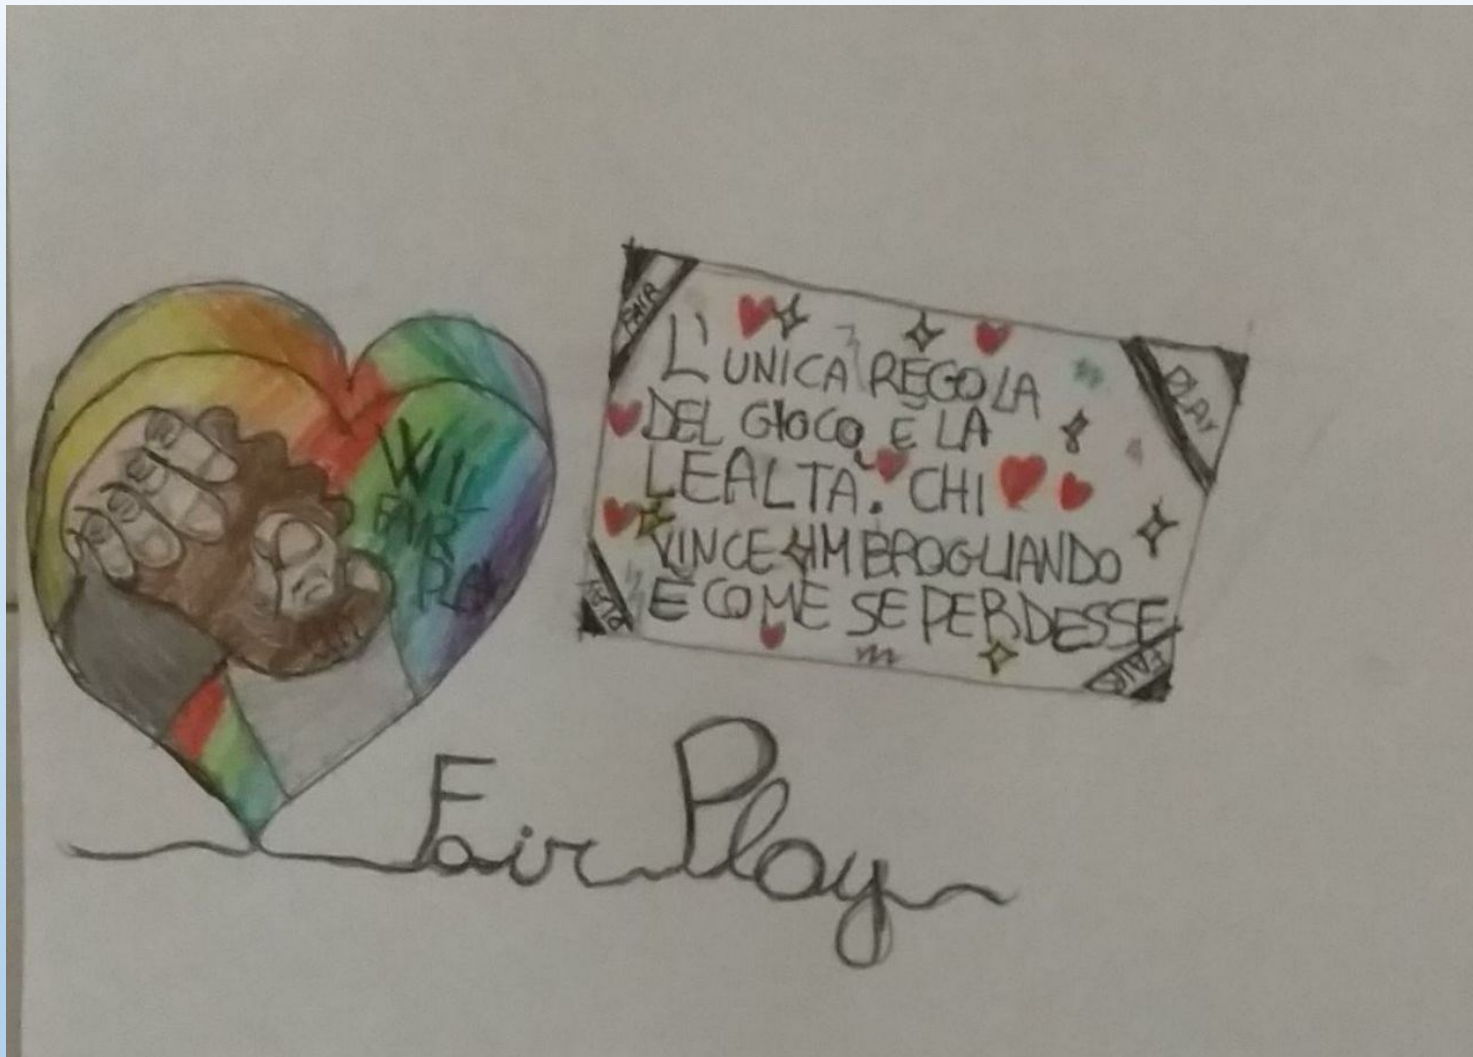 W
FAIR
PLAY
FAIR
PLAY
L'UNICA REGOLA
DEL GIOCO È LA
LEALTA. CHI
VINCE IMBROGLIANDO
È COME SE PERDESSE
PLAY
FAIR
Fair Play